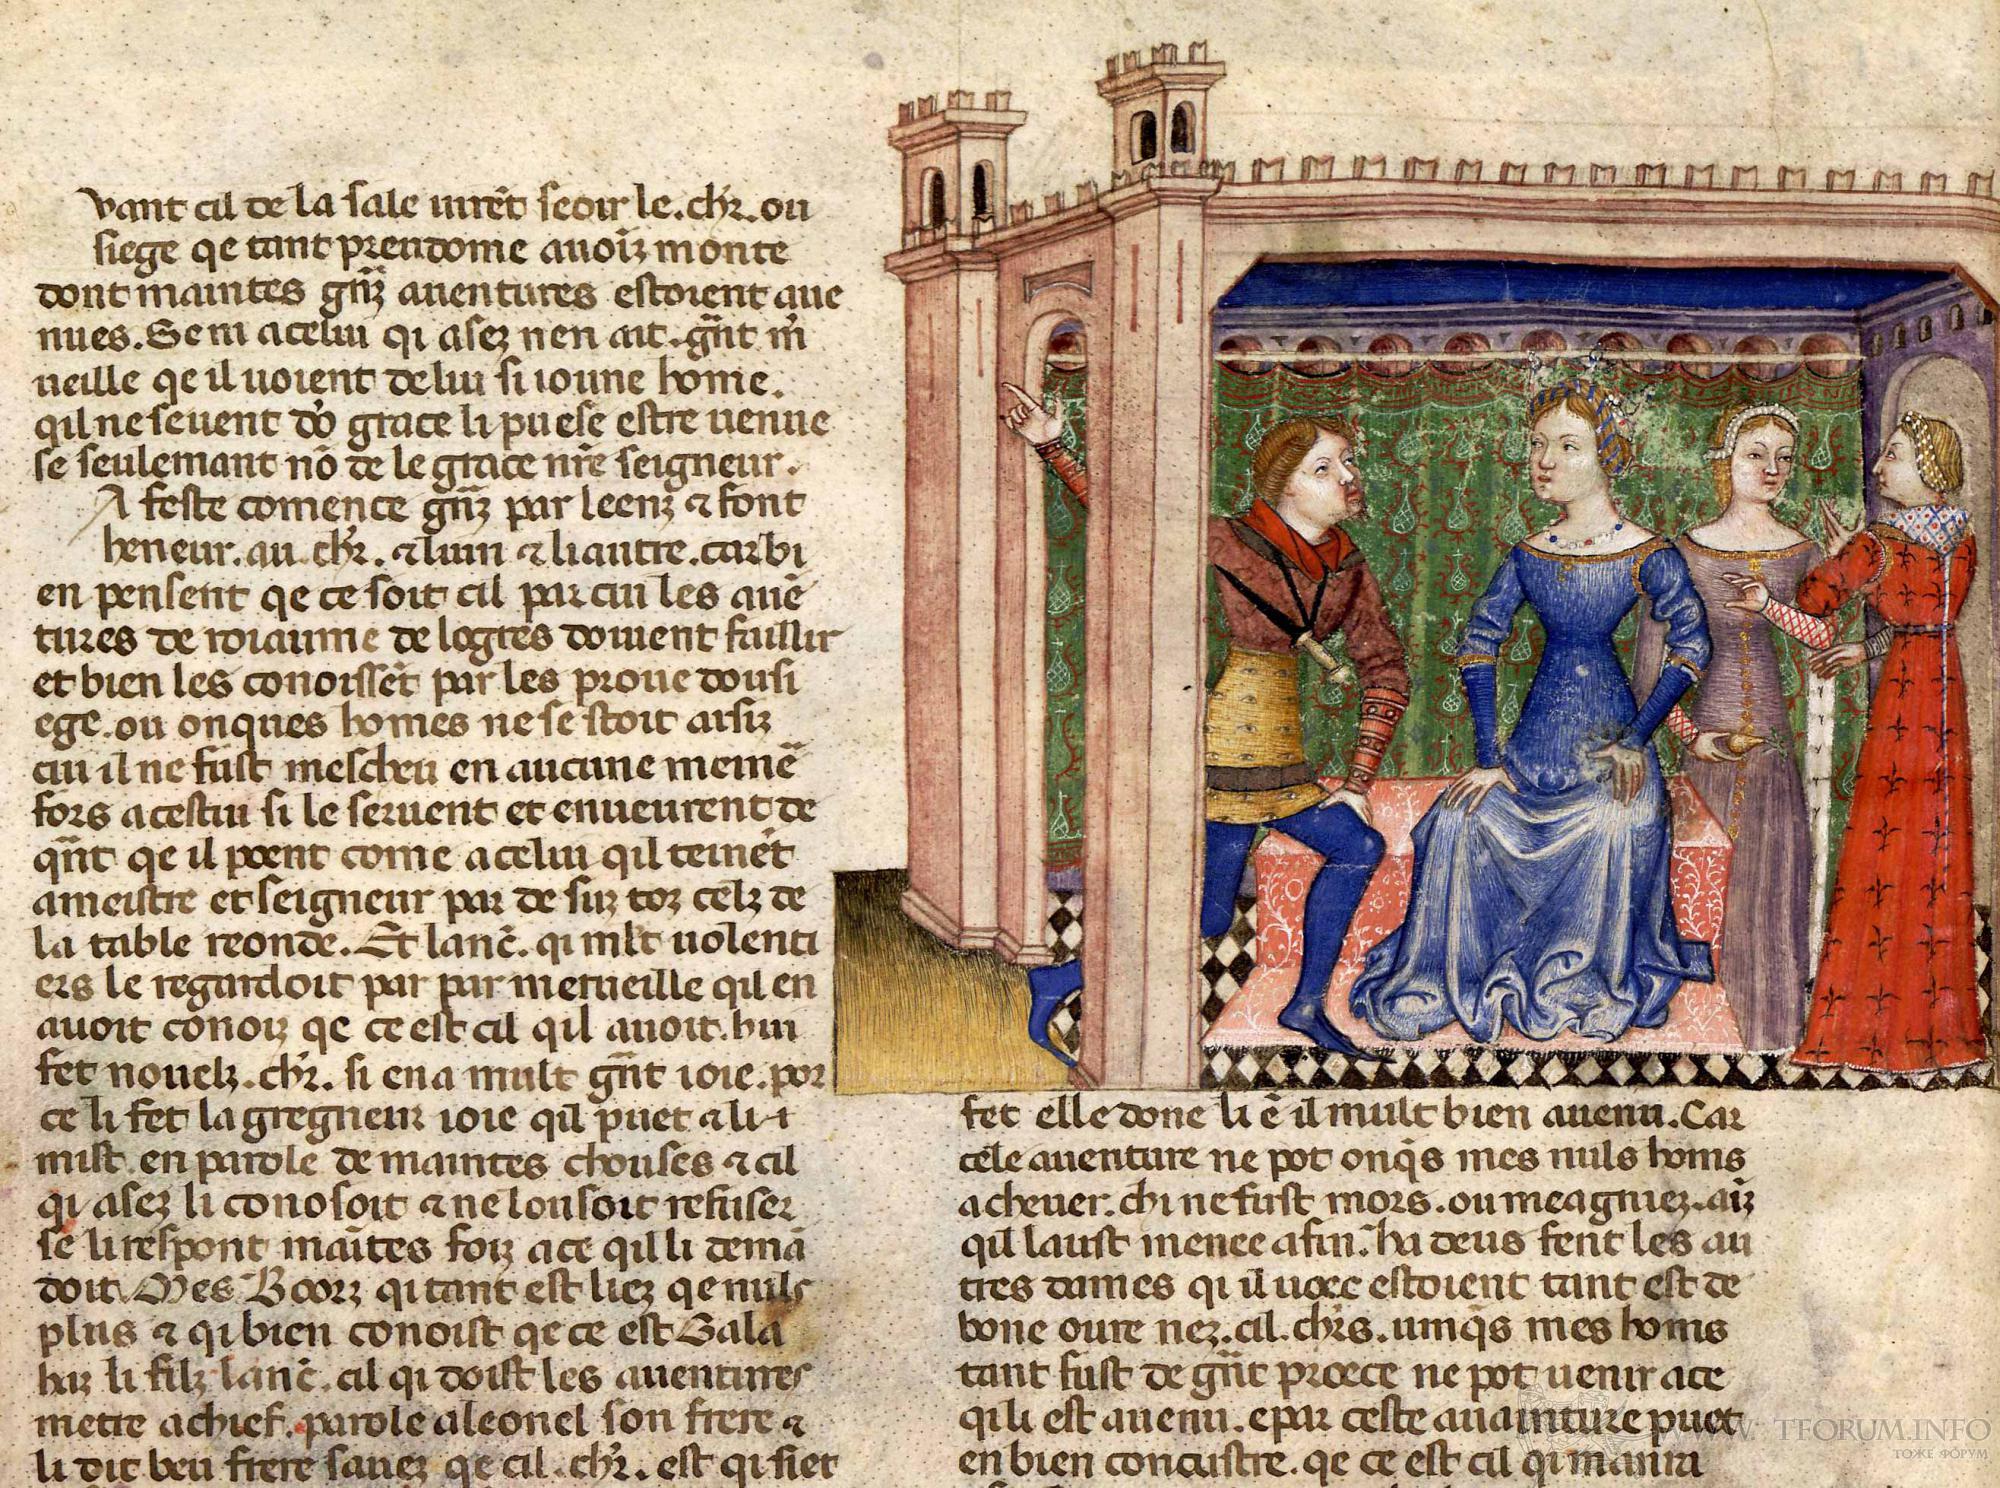 vant cil de la sale uirẽt seoir le. chꝛ̃. ou
siege qe tant preudome auoiꝫ monte
dont maintes gñꝫ auentures estoient aue
nues. Se ni a celui qi aseꝫ nen ait. gñt m̃
ueille qe il uoient de lui si ioune home.
qil ne seuent dõ grace li puese estre uenue
se seulemant nõ de le grace nr̃e seigneur.
A feste comence gñꝫ par leenꝫ ⁊ font
heneur. au. chꝛ̃. ⁊ luin ⁊ li autre. car bi
en pensent qe ce soit cil par cui les auẽ
tures de roiaume de logres doiuent faillir
et bien les conoissẽt par les proue dou si
ege. ou onques homes ne se stoit assiꝫ
cui il ne fust mescheu en aucune memẽ
fors a cestui si le seruent et enueurent de
qñt qe il poent come a celui qil teinẽt
a meistre et seigneur par de suꝫ toꝫ celꝫ de
la table reonde. Et lanc̃. qi mlt uolenti
ers le regardoit par par merueille qil en
auoit conoiꝫ qe ce est cil qil auoit. hui
fet nouelꝫ. chꝛ̃. si en a mult gñt ioie. por
ce li fet la gregneur ioie qil puet ⁊ li ⁊
mist. en parole de maintes chouses ⁊ cil
qi aseꝫ li conosoit ⁊ ne lou soit refuser
se li respont maĩtes foiꝫ a ce qil li demã
doit. Mes Boorꝫ qi tant est lieꝫ qe nuls
plus ⁊ qi bien conoist qe ce est Gala
haꝫ li filꝫ lanc̃. cil qi doist les auentures
metre a chief. parole a leonel son frere ⁊
li dit beu frere saueꝫ qe cil. chꝛ̃. est qi siet
fet elle done li ẽ il mult bien auenu. Car
cele auenture ne pot onqs̃ mes nuls homs
acheuer. chi ne fust mors. ou meagnieꝫ. aĩꝫ
qil laust menee a fin. ha deus fent les au
tres dames qi il uoec estoient tant est de
bone oure neꝫ. cil. chꝛ̃s. umqs̃ mes homs
tant fust de gñt proece ne pot uenir a ce
qi li est auenu. e par ceste auainture puet
en bien concustre. qe ce est cil qi
WWW. TFORUM.INFO
ТОЖЕ ФОРУМ